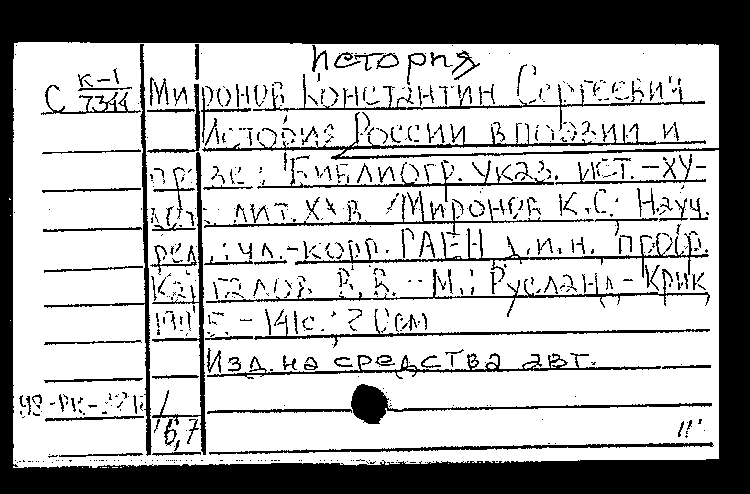 история
С К-1/7344 Миронов Константин Сергеевич
История России в поэзии и
прозе: Библиогр. указ. ист.-ху-
лит. XX в. /Миронов К.С; Науч.
ред.: чл.-корр. РАЕН д.и.н. проф.
Каргалов В.В. - М.: Русланд-Крик,
1995. - 141с.; 20см
Изд. на средства авт.
6,7